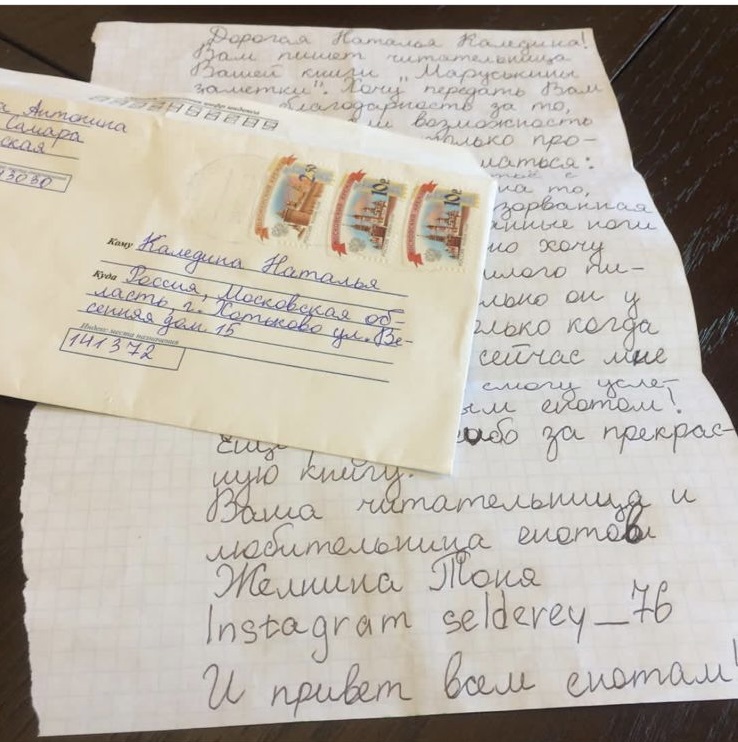 Дорогая Наталья Каледина!
Вам пишет читательница
Вашей книги „Маруськины
заметки". Хочу передать Вам
благодарность за то,
возможность
только про-
маться:
с
на то,
зорванная
нные ноги
но хочу
милого пи-
он у
только когда
сейчас мне
смогу услет-
ым енотом!
Ещё за прекрас-
ную книгу.
Ваша читательница и
любительница енотов
Желнина Тоня
Instagram selderey_76
И привет всем енотам!
Антонина
Самара
ская
3030
Кому Каледина Наталья
Куда Россия, Московская об
ласть, г. Хотьково ул. Ве-
сенняя дом 15
Индекс места назначения
141372
2,50
10р
10р